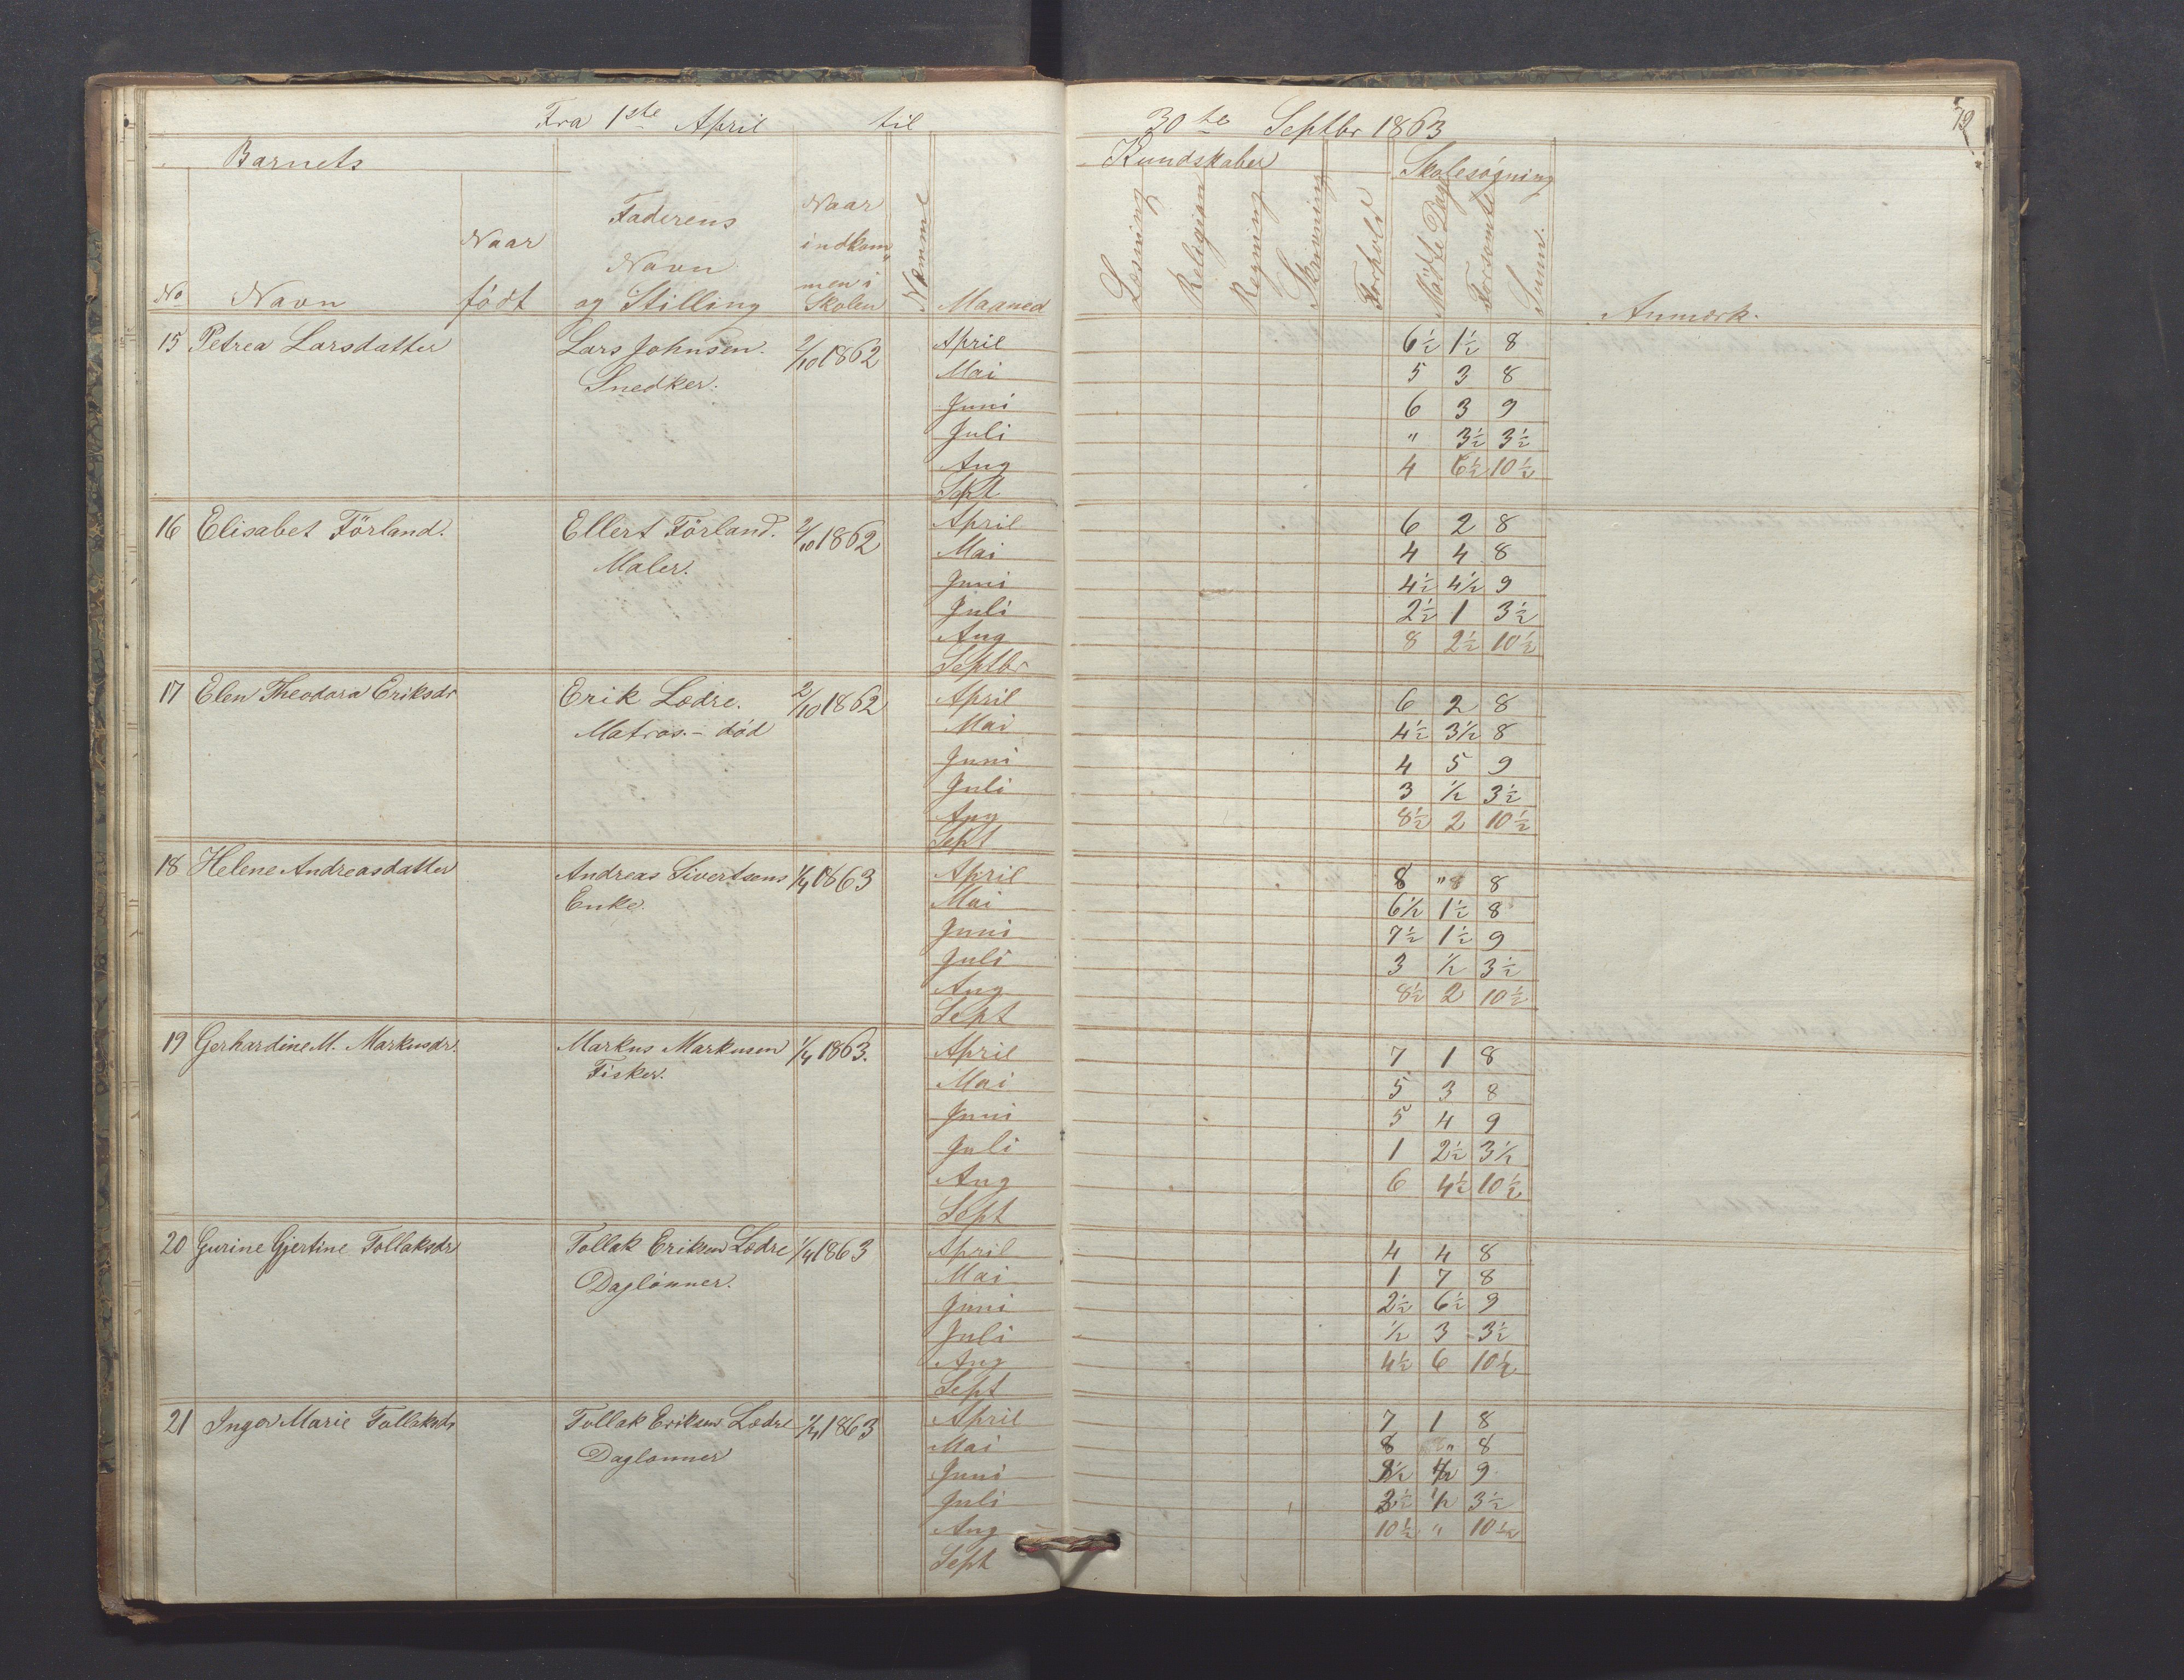 Fra 1ste April til 30te Septbr 1863
72
Barnets Kundskaber Skolesøgning
No Navn Naar født Faderens Navn og Stilling Naar indkommen i Skolen Nemme Maaned Læsning Religion Regning Skrivning Forhold Mødte Dage Forsømte Summ. Anmærk.
15 Petrea Larsdatter Lars Johnsen. 2/10 1862 April 6½ 1½ 8
Snedker. Mai 5 3 8
Juni 6 3 9
Juli " 3½ 3½
Aug 4 6½ 10½
Sept
16 Elisabet Förland. Ellert Förland. 2/10 1862 April 6 2 8
Maler. Mai 4 4 8
Juni 4½ 4½ 9
Juli 2½ 1 3½
Aug 8 2½ 10½
Septbr
17 Elen Theodora Eriksdr Erik Lodre. 2/10 1862 April 6 2 8
Matros. - død Mai 4½ 3½ 8
Juni 4 5 9
Juli 3 ½ 3½
Aug 8½ 2 10½
Sept
18 Helene Andreasdatter Andreas Sivertsens 1/4 1863 April 8 " 8
Enke. Mai 6½ 1½ 8
Juni 7½ 1½ 9
Juli 3 ½ 3½
Aug 8½ 2 10½
Sept
19 Gerhardine M. Markusdr. Markus Markusen 1/4 1863. April 7 1 8
Fisker. Mai 5 3 8
Juni 5 4 9
Juli 1 2½ 3½
Aug 6 4½ 10½
Sept
20 Gurine Gjertine Tollaksdr Tollak Eriksen Lodre 1/4 1863 April 4 4 8
Daglønner. Mai 1 7 8
Juni 2½ 6½ 9
Juli ½ 3 3½
Aug 4½ 6 10½
Sept
21 Inger Marie Tollaksdr Tollak Eriksen Lodre 1/4 1863 April 7 1 8
Daglonner Mai 8 " 8
Juni 8½ ½ 9
Juli 3½
Aug 10½ " 10½
Sept